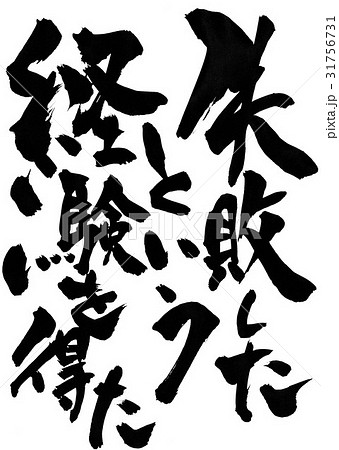 失敗した
という
経験を得た
PIXTA
pixta.jp - 31756731